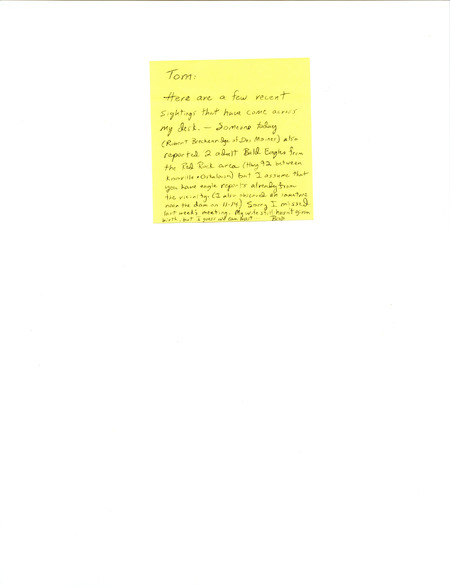 Tom:
Here are a few recent
sightings that have come across
my desk. — Someone today
(Robert Breckenridge of Des Moines) also
reported 2 adult Bald Eagles from
the Red Rock area (Hwy 92 between
Knoxville + Oskaloosa) but I assume that
you have eagle reports already from
the vicinity. (I also observed an immature
near the dam on 11-14) Sorry I missed
last week's meeting. My wife still hasn't given
birth, but I guess we can wait.
Bob